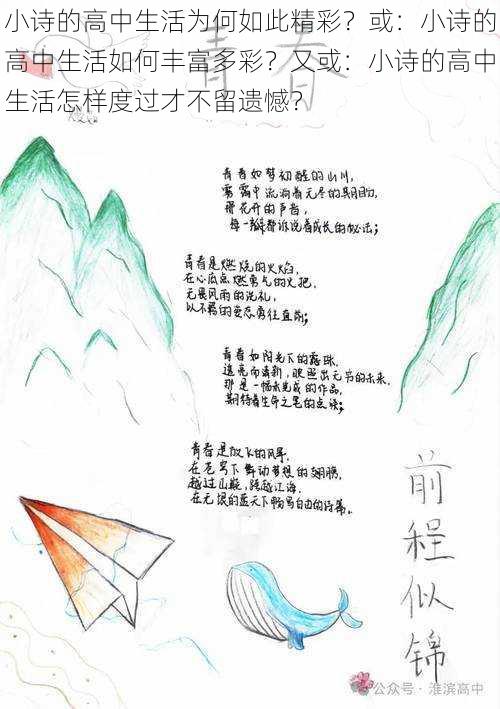 小诗的高中生活为何如此精彩？或：小诗的
高中生活如何丰富多彩？又或：小诗的高中
生活怎样度过才不留遗憾？
青春
青春如梦初醒的山川，
雾霭中流淌着无尽的期盼，
携花开的声音，
每一瓣都诉说着成长的秘法；
青春是燃烧的火焰，
在心底点燃勇气的火把，
无畏风雨的洗礼，
以不羁的姿态勇往直前；
青春如阳光下的露珠，
透亮而清新，映照出无穷的未来，
那是一幅未完成的作品，
期待着生命之笔的点缀；
青春是放飞的风筝，
在苍穹下舞动梦想的翅膀，
越过山巅，跨越江海，
在无垠的蓝天下畅写自由的诗篇。
前程似锦
公众号·淮滨高中